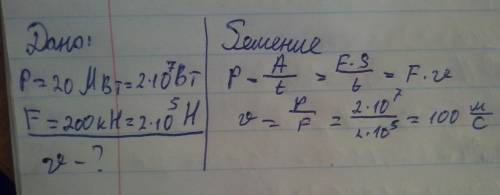 Дано:
P=20 МВт=2·10⁷Вт
F=200кН=2·10⁵Н
v-?
Решение
P-A/t=F·S/t=F·v
v=P/F=2·10⁷/2·10⁵=100 м/с